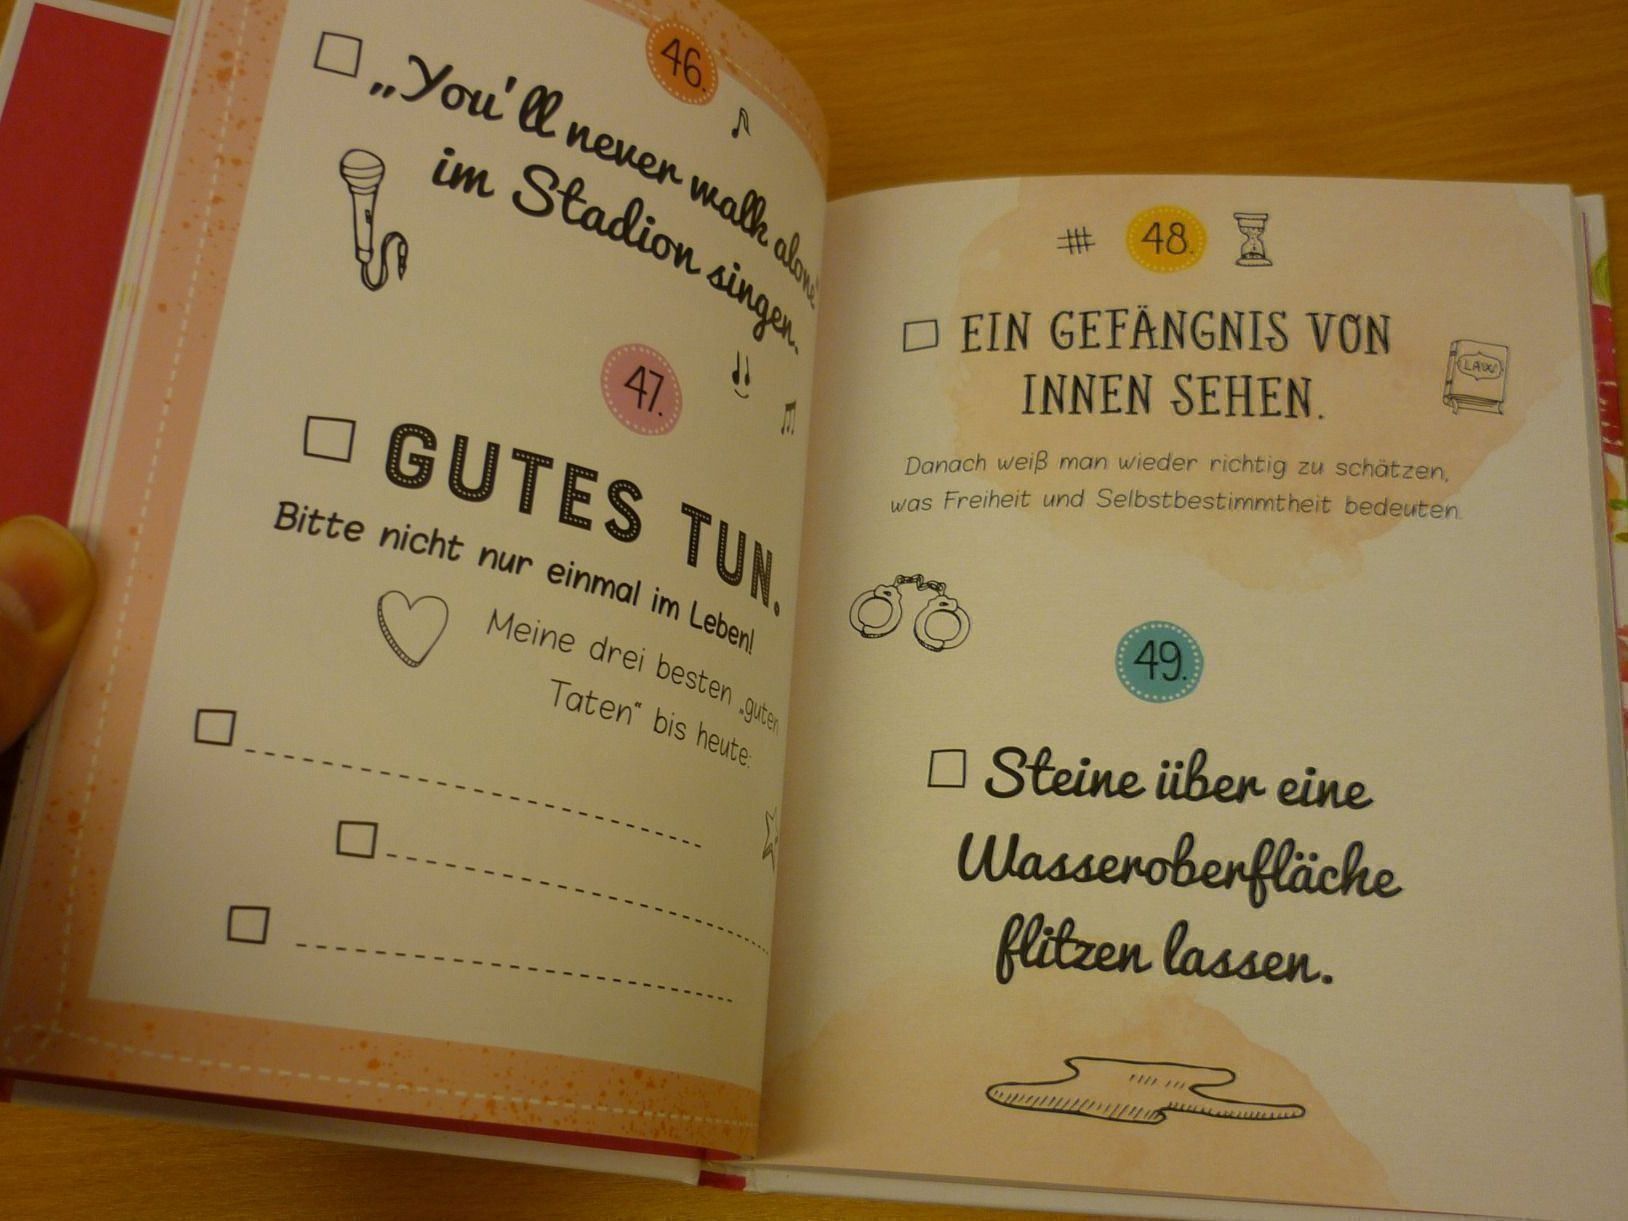 46.
„You'll never walk alone“
im Stadion singen.
47.
GUTES TUN.
Bitte nicht nur einmal im Leben!
Meine drei besten „guten
Taten“ bis heute:
48.
EIN GEFÄNGNIS VON
INNEN SEHEN.
LAW
Danach weiß man wieder richtig zu schätzen,
was Freiheit und Selbstbestimmtheit bedeuten.
49.
Steine über eine
Wasseroberfläche
flitzen lassen.